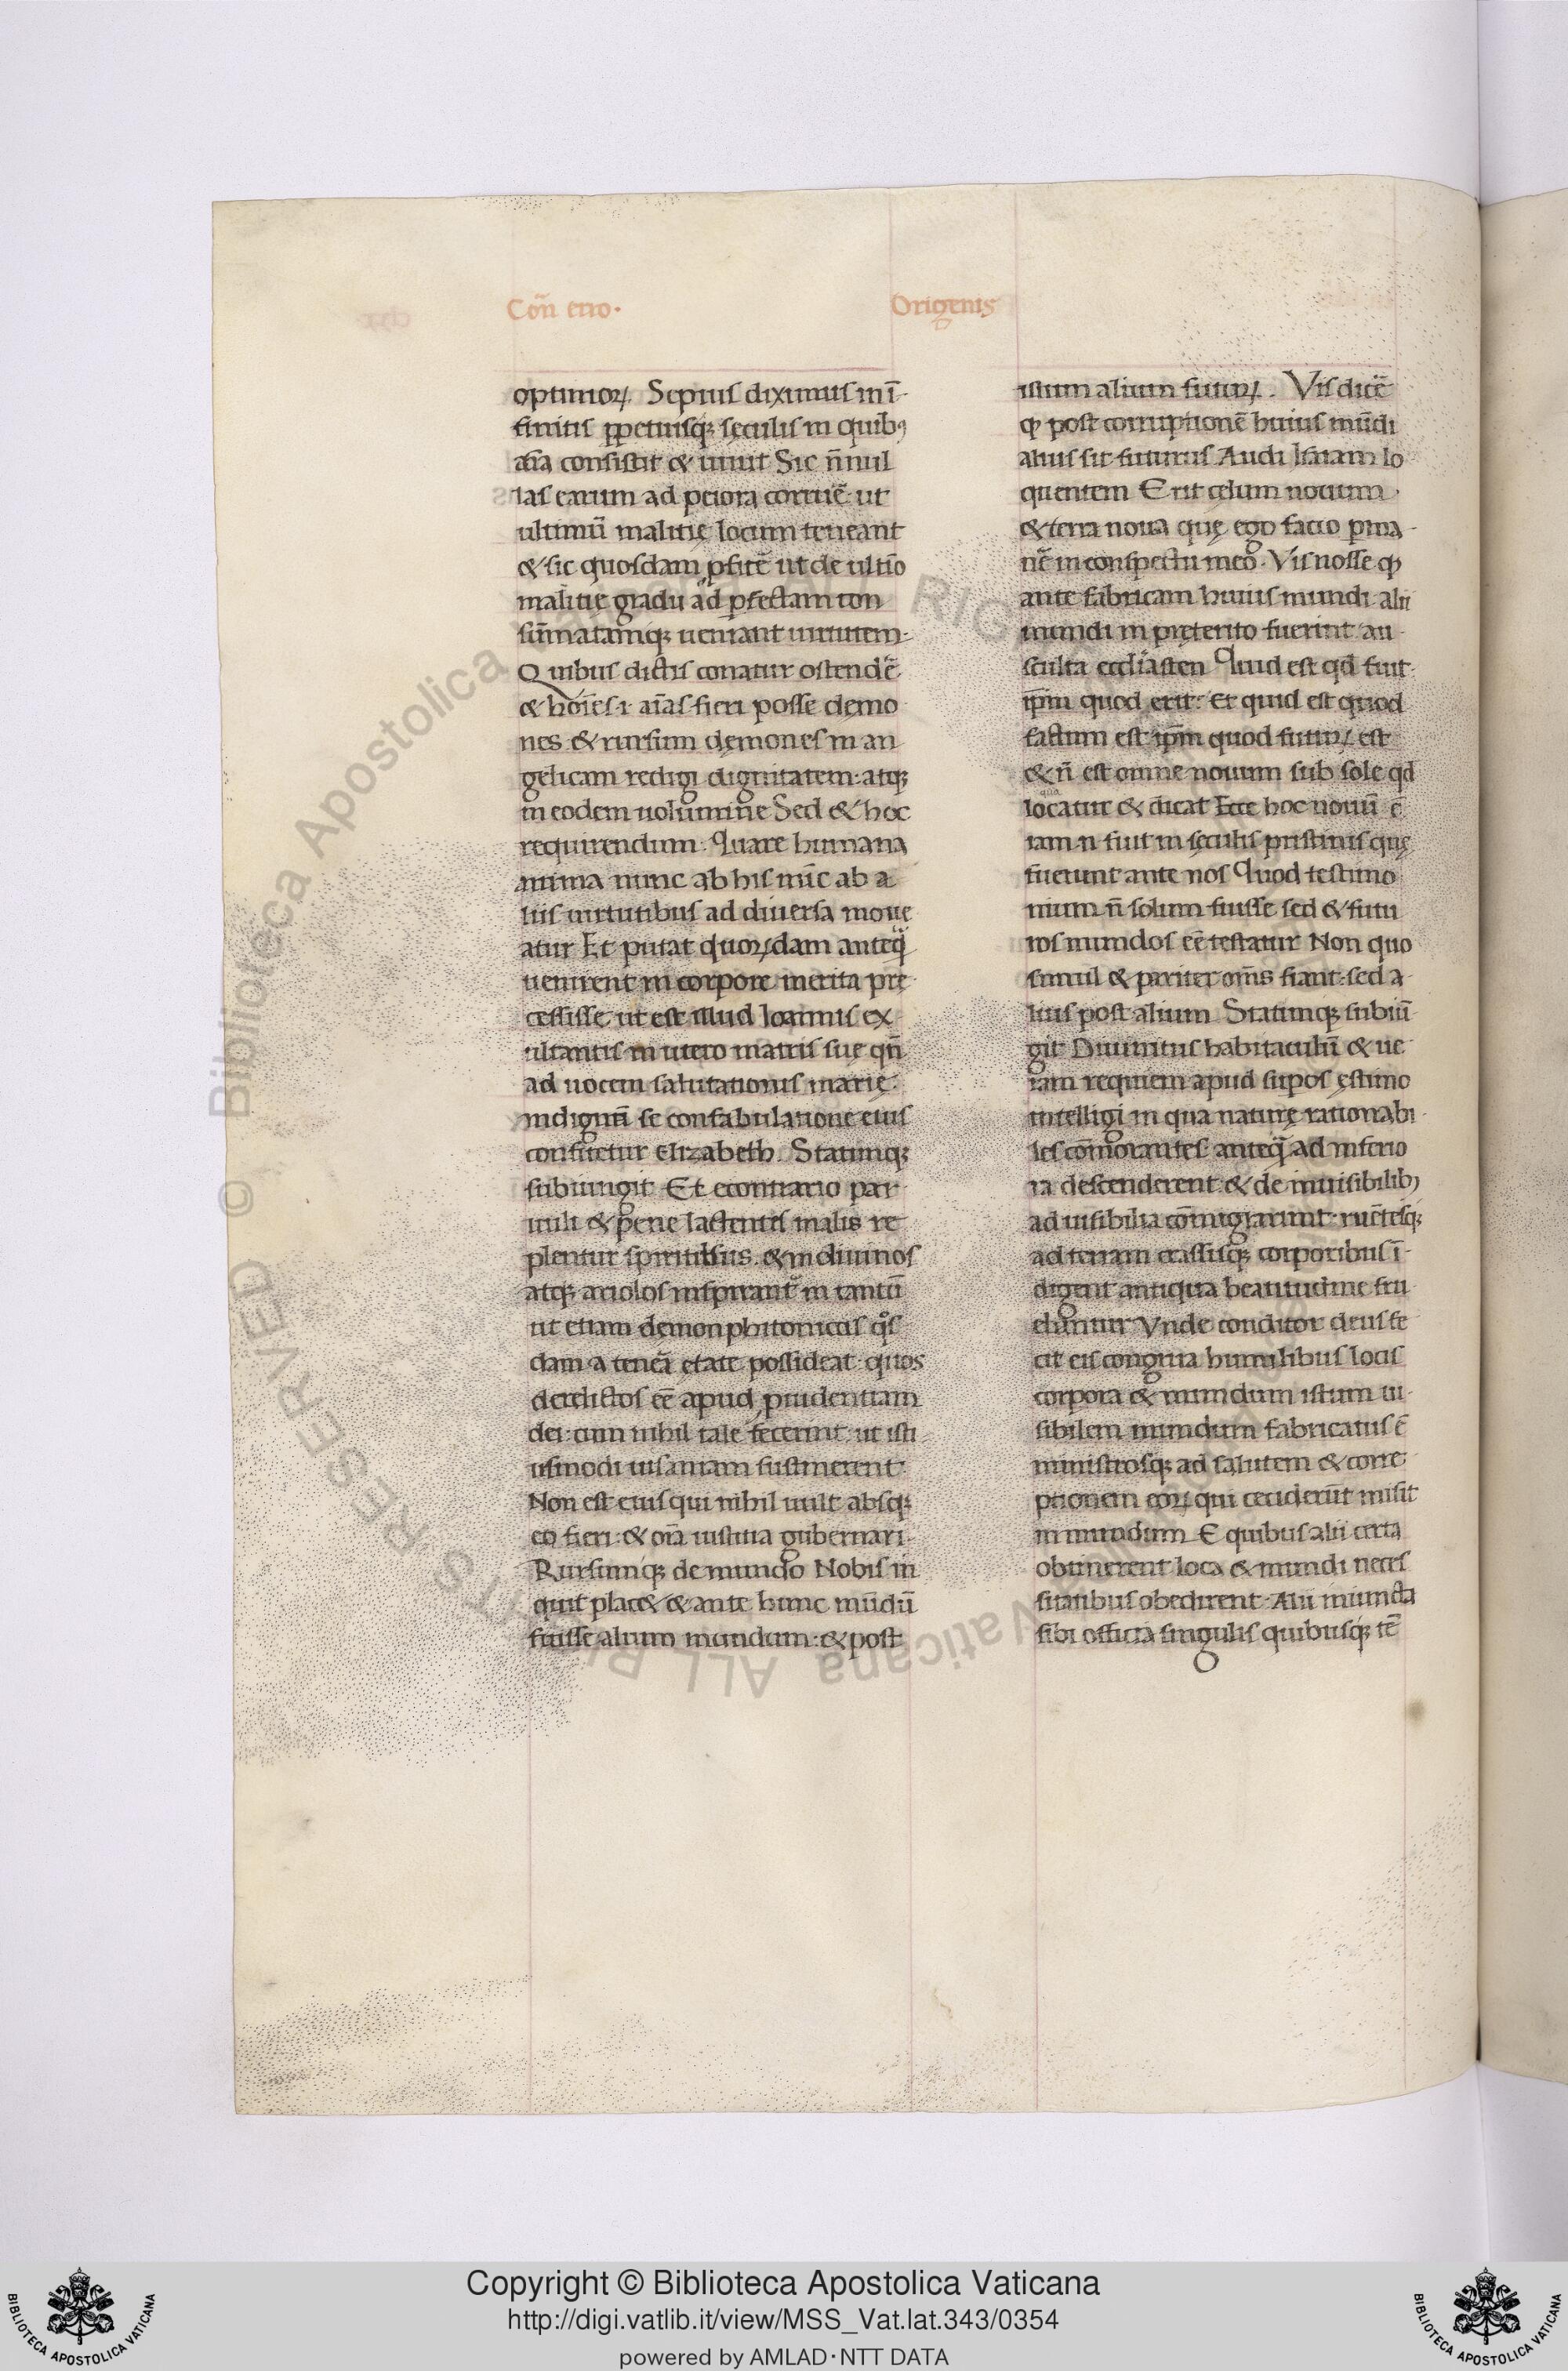 Coñ erro. Origenis
optimoꝝ. Sepius diximus in ī
finitis ꝑpetuisqꝫ sęculis in quibꝰ
aīa consistit & uiuit Sic n̄nul
las earum ad peiora corruē̄ ut
ultimū malitię locum teneant
& sic quosdam ꝓficē ut de ultīo
malitię gradu ad ꝑfectam con
sūmatamqꝫ ueniant uirtutem.
Quibus dictis conatur ostendē̄
& hoīes .i. aīas fieri posse demo
nes & rursum dęmones in an
gelicam redigi dignitatem: atqꝫ
in eodem uolumine Sed & hoc
requirendum. Quare humana
anima nunc ab his nūc ab a
liis uirtutibus ad diuersa moue
atur Et putat quoꝝdam anteq̄
uenirent in corpore merita prę
cessisse ut est illud Ioannis ex
ultantis in utero matris suę qn̄
ad uocem salutationis marię
indignū se confabulatione eius
confitetur Elizabeth. Statimqꝫ
subiungit Et econtrario par
uuli & pene lactentes malis re
plentur spiritibus & in diuinos
atqꝫ ariolos inspirant᷑ in tantū
ut etiam dęmon phitonicus qͦs
dam a tenera etate possideat quos
derelictos eē apud ꝓuidentiam
dei: cum nihil tale fecerint ut isti
usmodi insaniam sustinerent
Non est eius qui nihil uult absqꝫ
eo fieri: & oīa iustitia gubernari.
Rursumqꝫ de mundo Nobis in
quit plac& & ante hunc mūdū
fuisse alium mundum: & post
istum alium futuꝝ. Vis dicē̄
ꝙ post corruptionē huius mūdi
alius sit futurus Audi Isaiam lo
quentem Erit cęlum nouum
& terra noua quę ego facio ꝑma
nē̄ in conspectu meo. Vis nosse ꝙ
ante fabricam huius mundi alii
mundi in pręterito fuerint au
sculta ecclīasten Quid est qd̄ fuit
ip̄m quod erit: Et quid est quod
factum est ip̄m quod futuꝝ est
& n̄ est omne nouum sub sole qd̄
loquatur & dicat Ecce hoc nouū ē
iam n̄ fuit in sęculis pristinis quę
fuerunt ante nos Quod testimo
nium n̄ solum fuisse sed & futu
ros mundos eē testatur Non quo
simul & pariter om̄s fiant: sed a
lius post alium Statimqꝫ subiū
git Diuinitus habitaculū & ue
ram requiem apud suꝑos ęstimo
intelligi in qua naturę rationabi
les cōmorantes anteq̄ ad inferio
ra descenderent & de inuisibilibꝫ
ad uisibilia cōmigrarunt ruētesqꝫ
ad terram crassisqꝫ corporibus ī
digent antiqua beatitudine fru
ebantur Vnde conditor deus fe
cit eis congrua humilibus locis
corpora & mundum istum ui
sibilem mundum fabricatus ē
ministrosqꝫ ad salutem & corre
ptionem eoꝝ qui ceciderūt misit
in mundum E quibus alii certa
obtinerent loca & mundi neces
sitatibus obedirent Alii iniuncta
sibi officia singulis quibusqꝫ tē
© Biblioteca Apostolica Vaticana ALL RIGHTS RESERVED
Copyright © Biblioteca Apostolica Vaticana
http://digi.vatlib.it/view/MSS_Vat.lat.343/0354
powered by AMLAD·NTT DATA
BIBLIOTECA APOSTOLICA VATICANA
BIBLIOTECA APOSTOLICA VATICANA